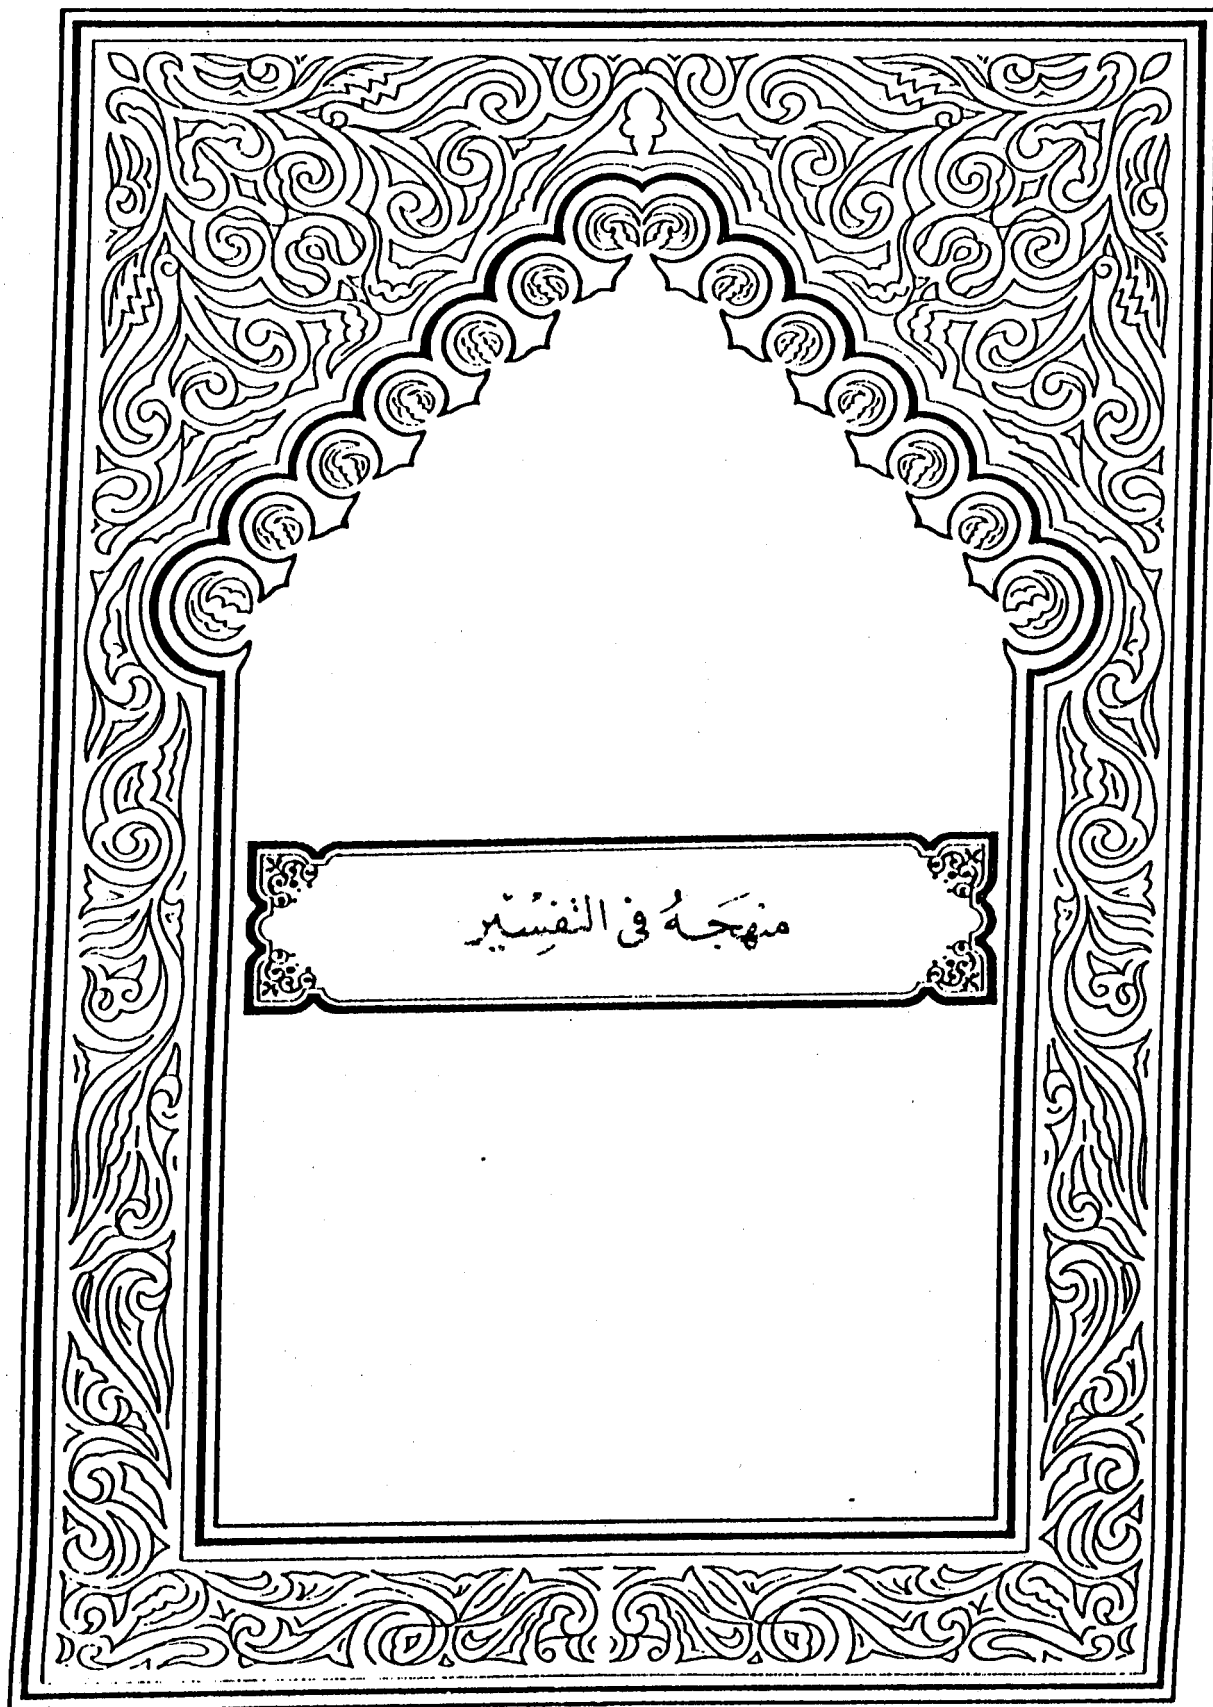 منهَجَهُ في التَفسِيْر